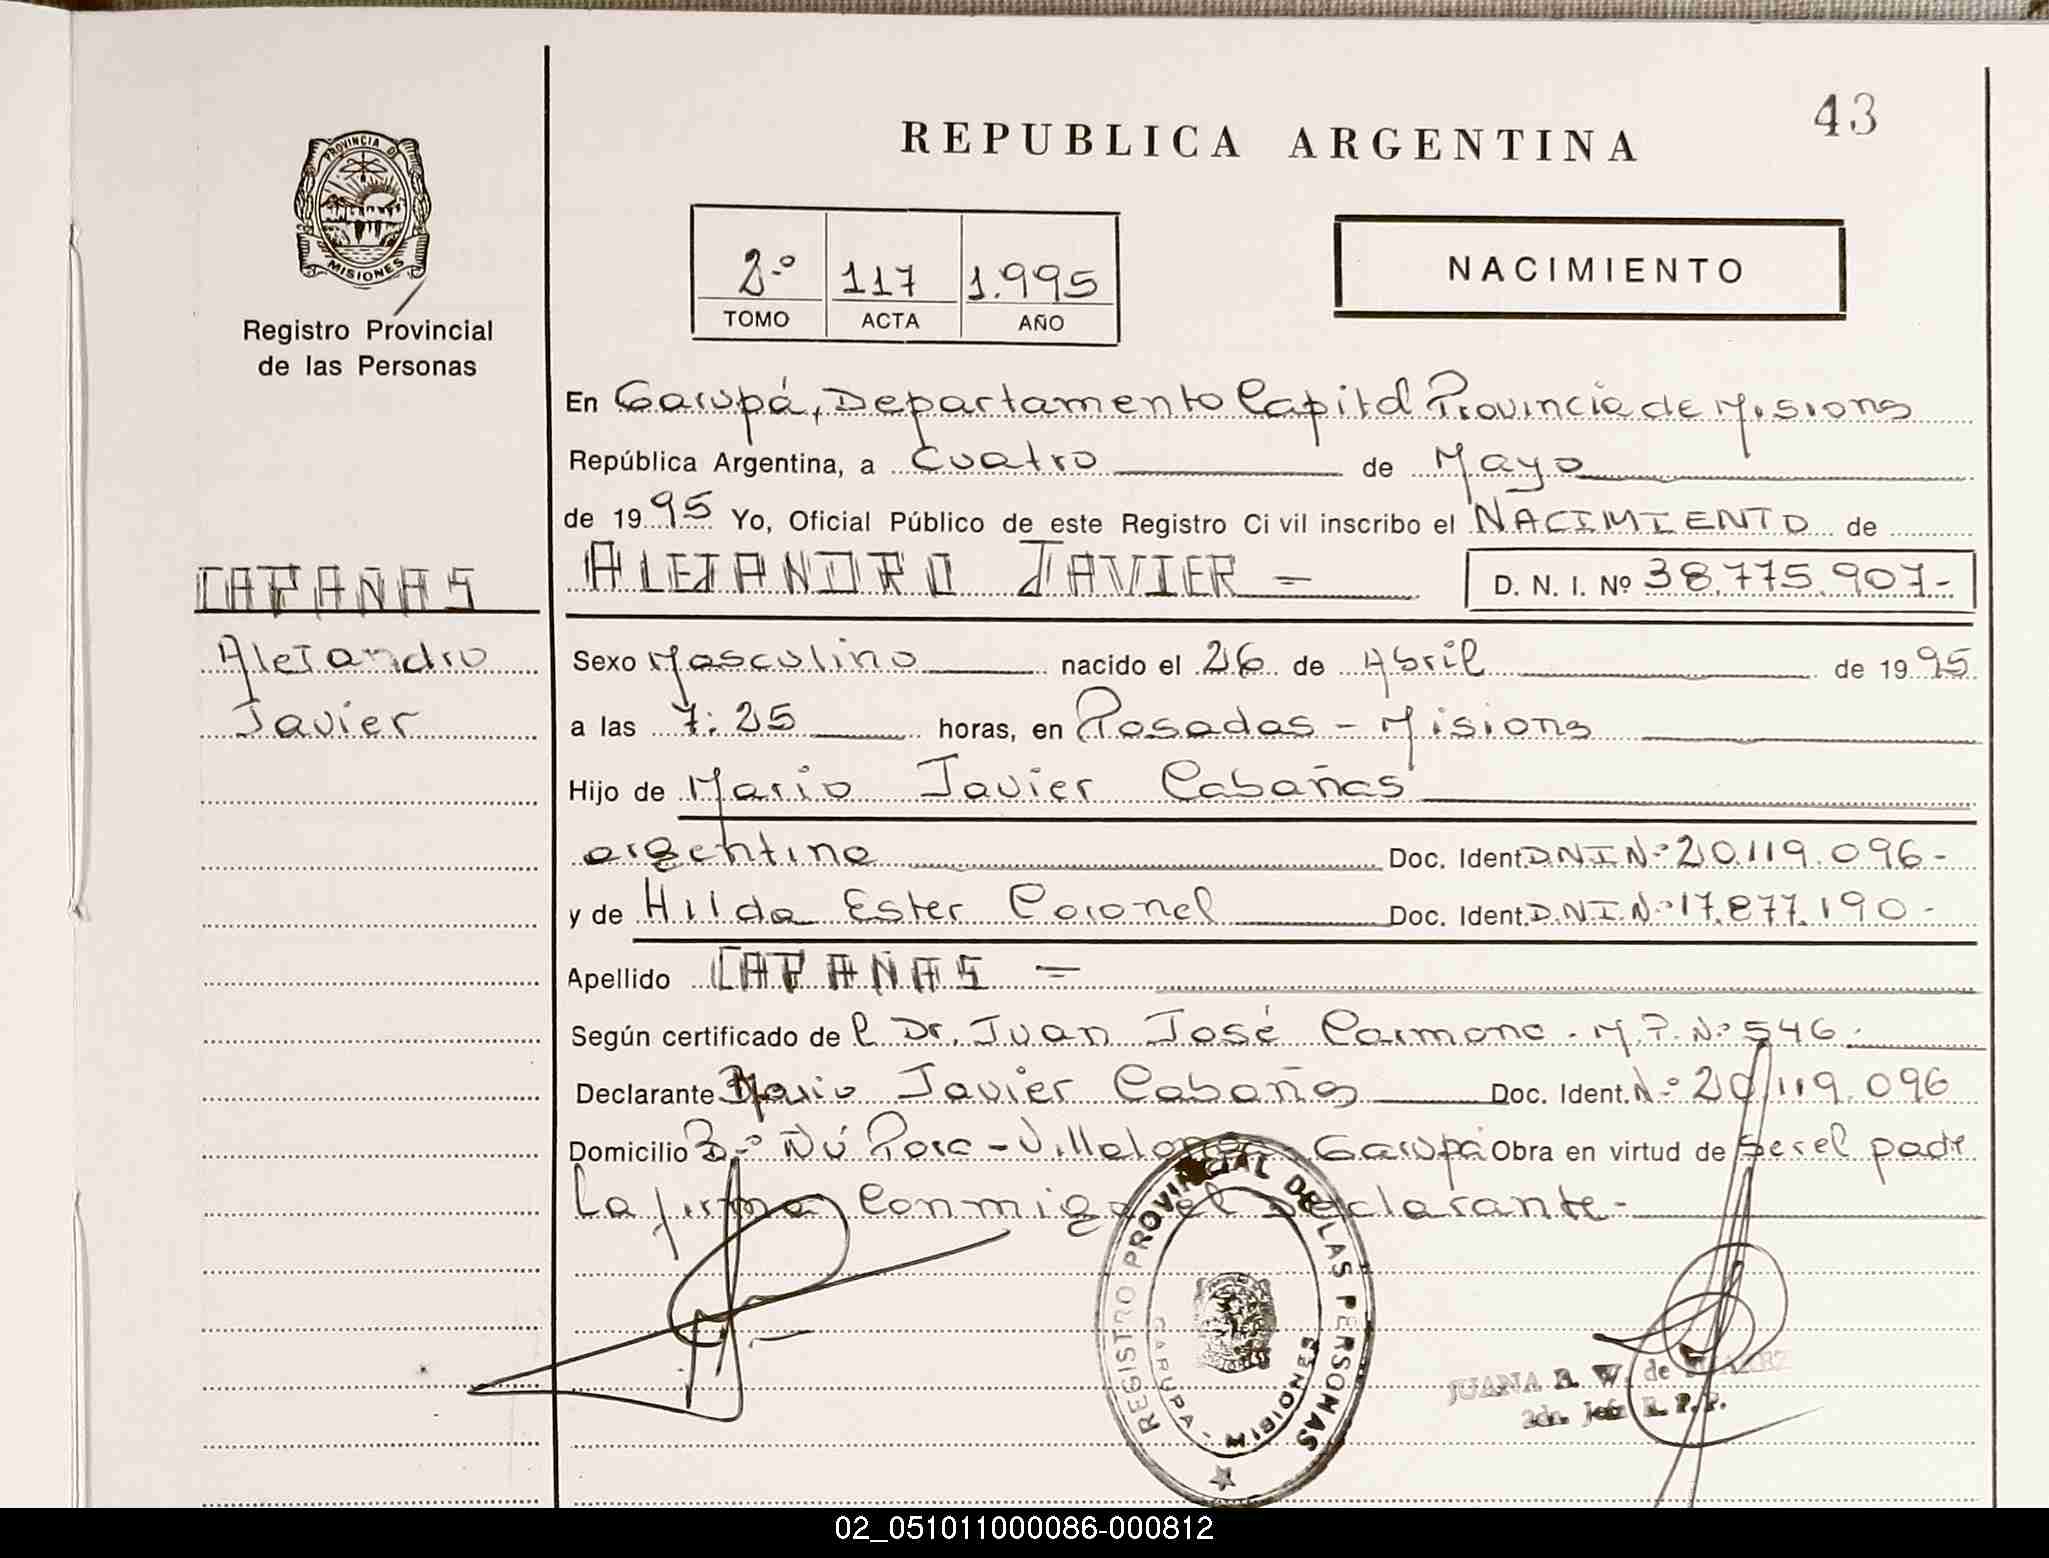 43
REPUBLICA ARGENTINA
PROVINCIA DE
MISIONES
Registro Provincial
de las Personas
2º 117 1.995
TOMO ACTA AÑO
NACIMIENTO
En Garupá, Departamento Capital Provincia de Misiones
República Argentina, a cuatro de Mayo
de 1995 Yo, Oficial Público de este Registro Civil inscribo el NACIMIENTO de
ALEJANDRO JAVIER = D. N. I. Nº 38.775.907-
CABAÑAS
Alejandro
Javier
Sexo Masculino nacido el 26 de Abril de 1995
a las 7:25 horas, en Posadas - Misiones
Hijo de Mario Javier Cabañas
argentino Doc. Ident. D.N.I.Nº 20.119.096-
y de Hilda Ester Coronel Doc. Ident. D.N.I.Nº 17.877.190-
Apellido CABAÑAS =
Según certificado de l Dr. Juan José Carmona - M.P. Nº 546.
Declarante Mario Javier Cabañas Doc. Ident. Nº 20.119.096
Domicilio Bº Ñú Porá - Garupá Obra en virtud de ser el padre
La firma conmigo el declarante-
REGISTRO PROVINCIAL DE LAS PERSONAS
GARUPA - MISIONES
JUANA R. W. de
R. P. P.
02_051011000086-000812